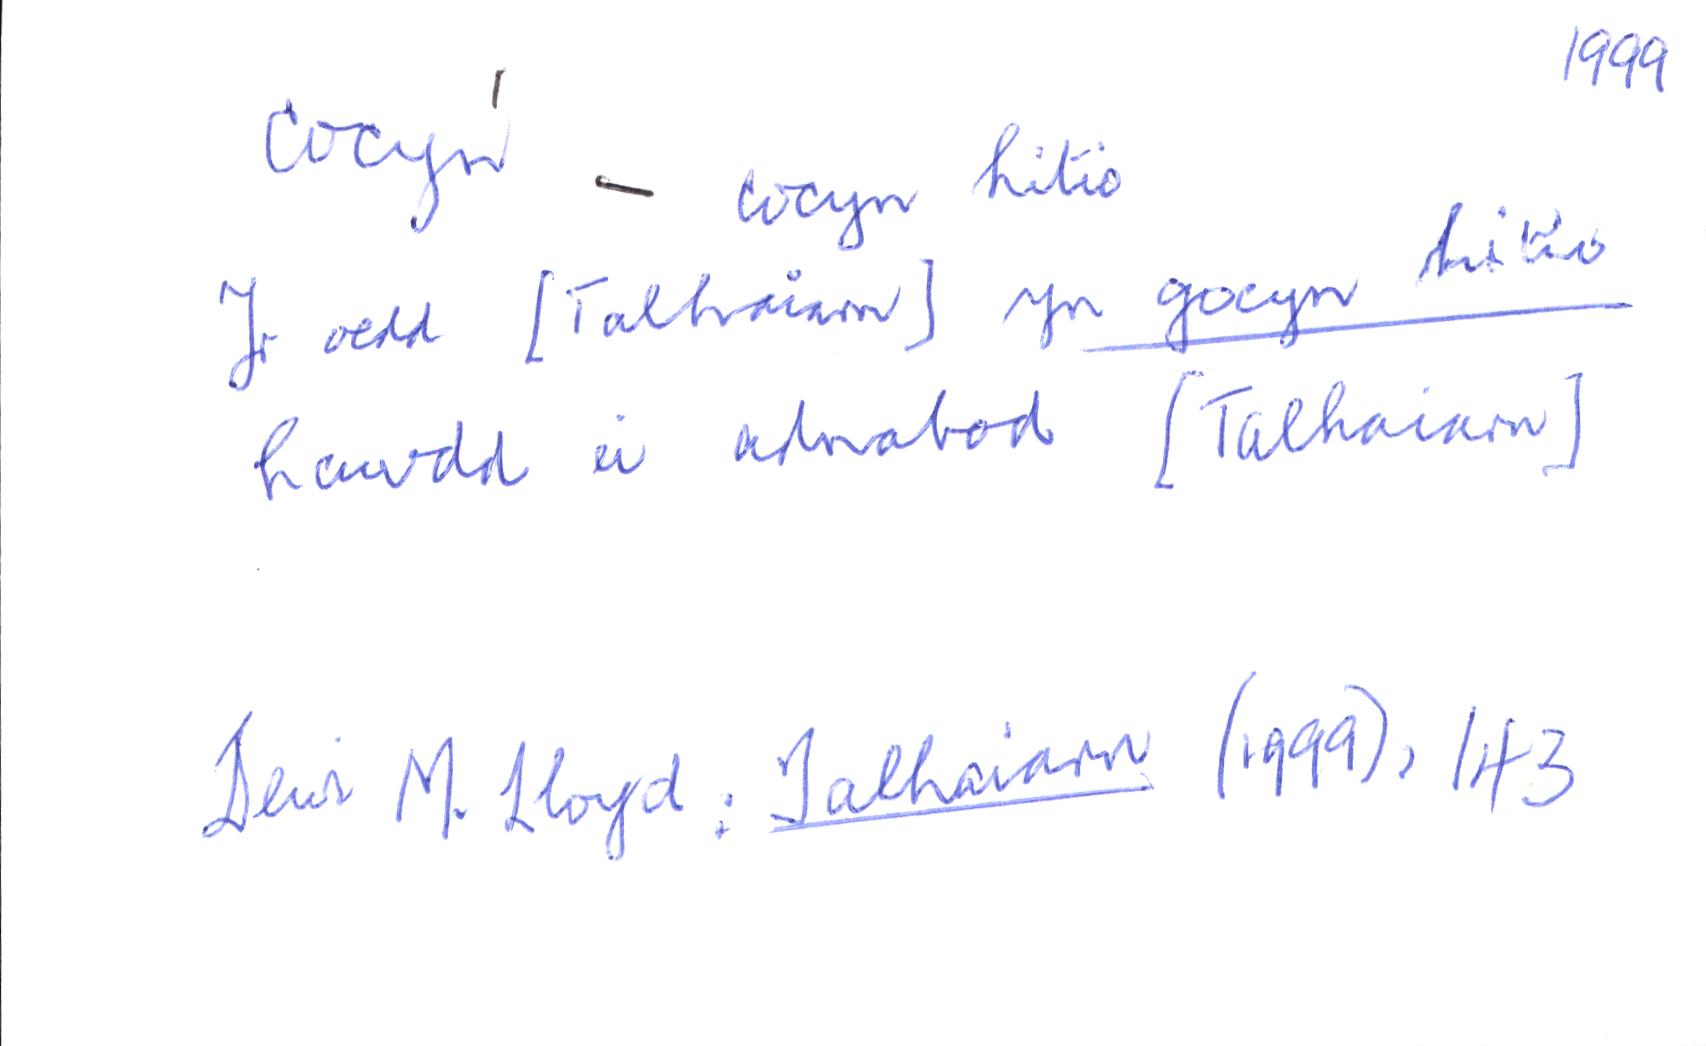 1999
cocyn¹ – cocyn hitio
Yr oedd [Talhaiarn] yn gocyn hitio
hawdd ei adnabod [Talhaiarn]
Dewi M. Lloyd: Talhaiarn (1999), 143